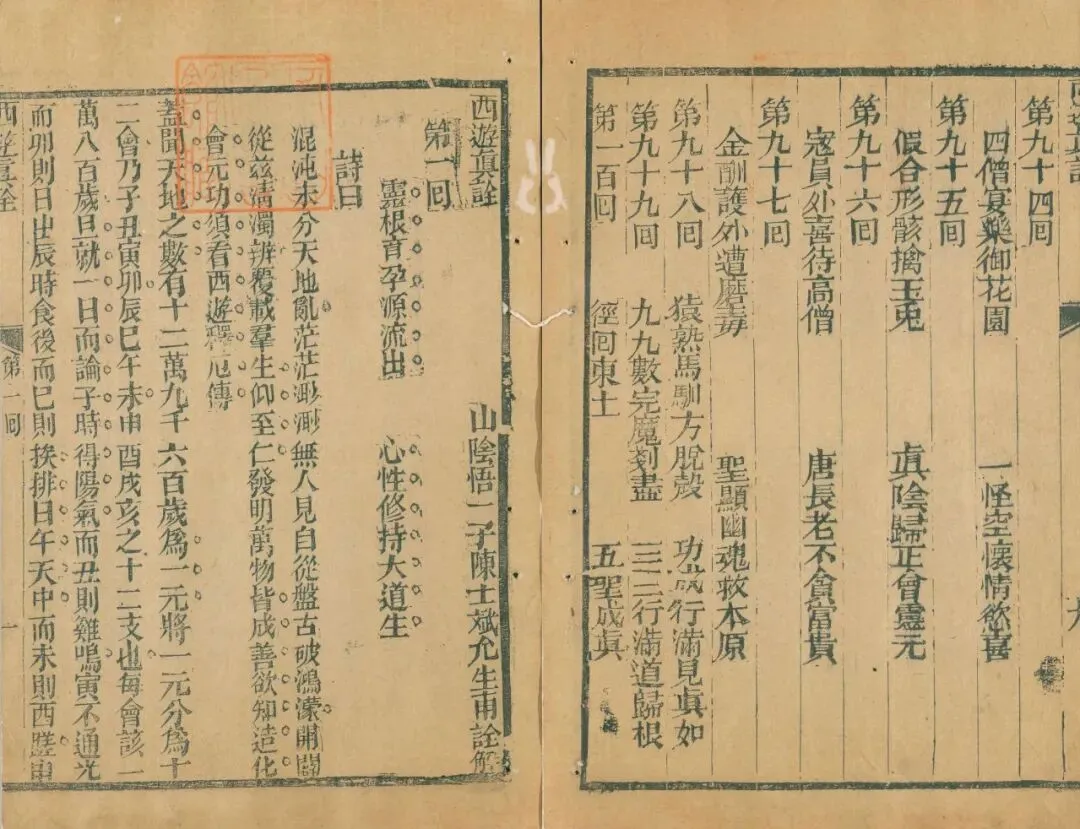 第九十四回
四僧宴樂御花園 一怪空懷情慾喜
第九十五回
假合形骸擒玉兎 眞陰歸正會靈元
第九十六回
寇員外喜待高僧 唐長老不貪富貴
第九十七回
金酬護外遭魔毒 聖顯幽魂救本原
第九十八回 猿熟馬馴方脫殼 功成行滿見眞如
第九十九回 九九數完魔剗盡 三三行滿道歸根
第一百回 徑回東土 五聖成眞
西遊眞詮
山陰悟一子陳士斌允生甫詮解
第一回
靈根育孕源流出 心性修持大道生
詩曰
混沌未分天地亂茫茫渺渺無人見自從盤古破鴻濛開闢
從茲清濁辨覆載羣生仰至仁發明萬物皆成善欲知造化
會元功須看西遊釋厄傳
蓋聞天地之數有十二萬九千六百歲爲一元將一元分爲十
二會乃子丑寅卯辰巳午未申酉戌亥之十二支也每會該一
萬八百歲且就一日而論子時得陽氣而丑則雞鳴寅不通光
而卯則日出辰時食後而巳則挨排日午天中而未則西蹉申
西遊眞詮 第一回 一